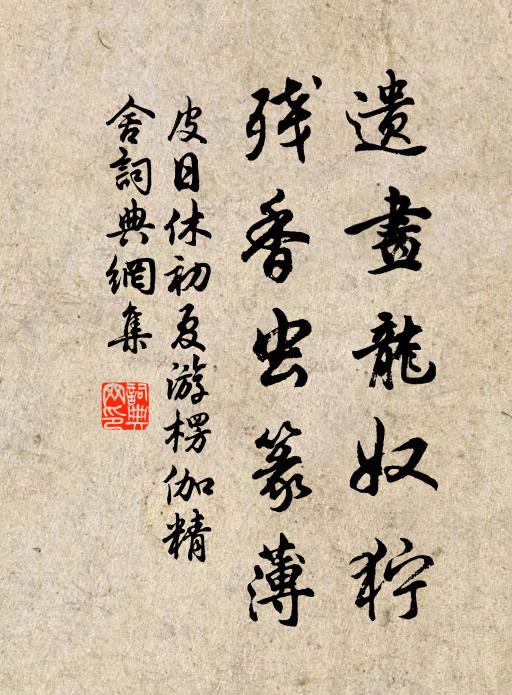 遗畫龍奴狞
残香虫篆薄
皮日休初夏游楞伽精
舍詞典網集
詞典
网印